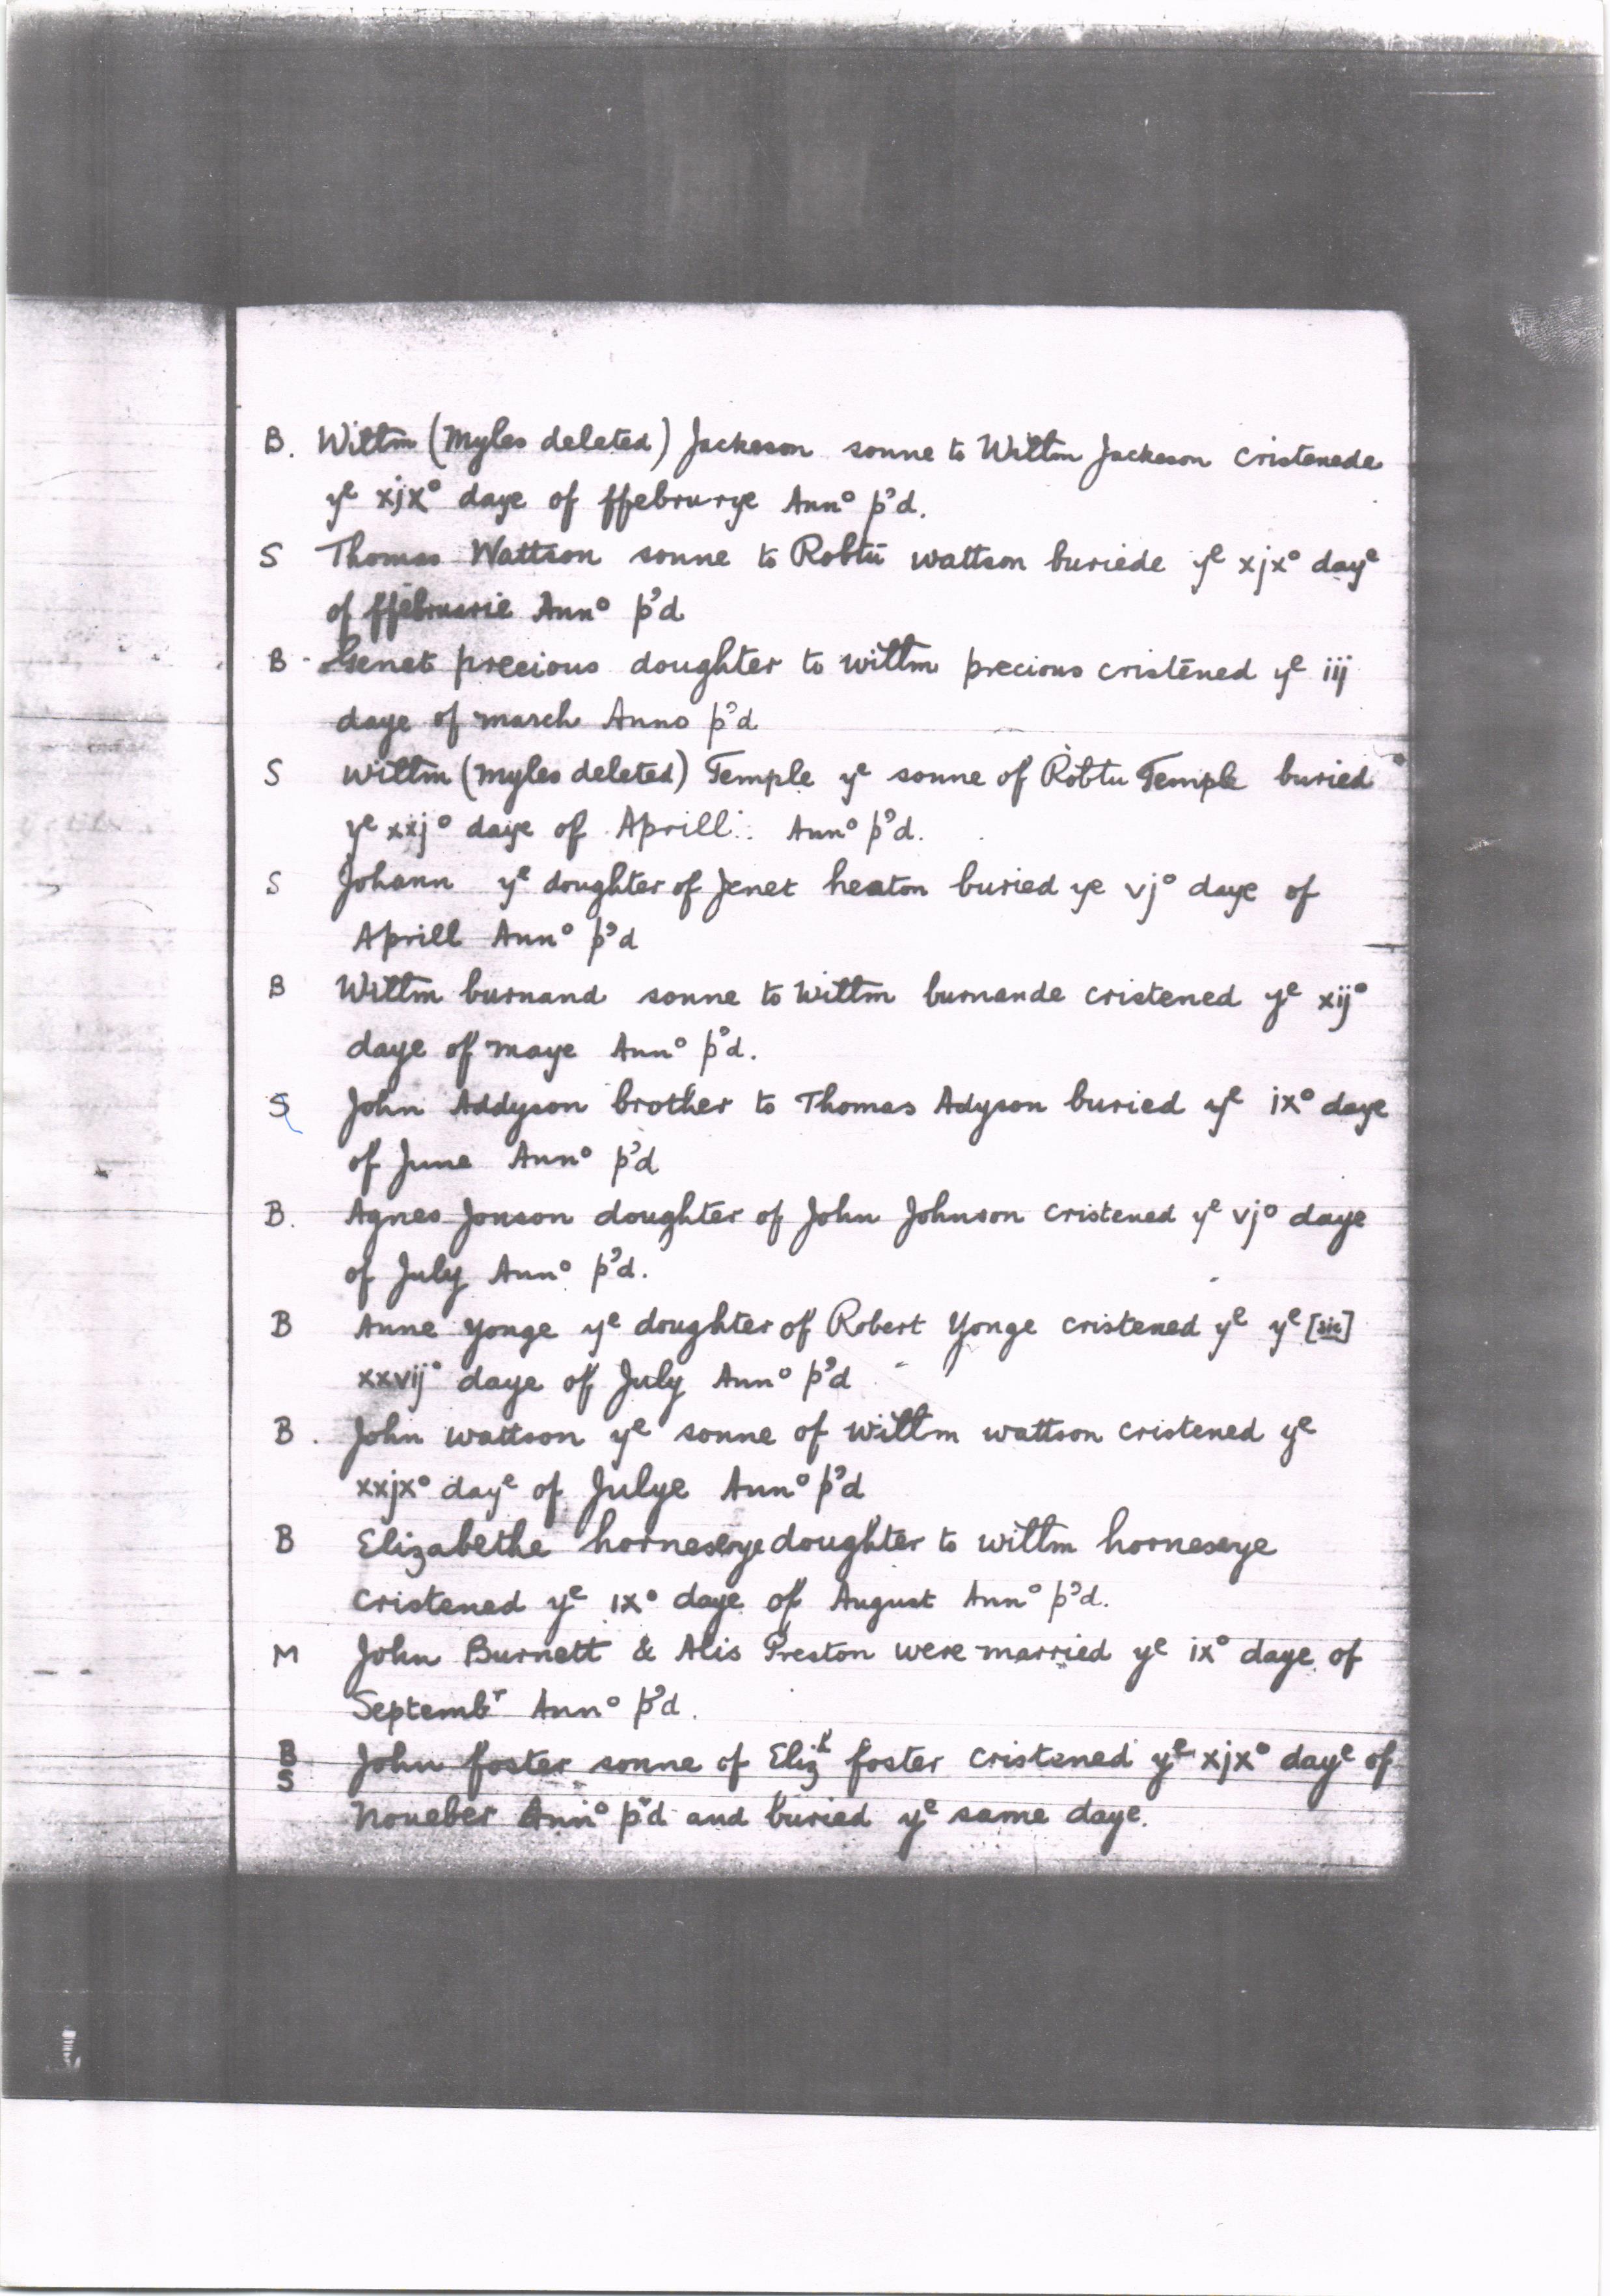 B. Willm (Myles deleted) Jackeson sonne to Willm Jackeson cristenede
yᵉ xjx° daye of ffebrurye Ann° p'd.
S Thomas Wattson sonne to Robtū wattson buriede yᵉ xjx° dayᵉ
of ffebruarie Ann° p'd
B Genet precious doughter to willm precious cristēned yᵉ iij
daye of march Anno p'd
S willm (Myles deleted) Temple yᵉ sonne of Robtu Temple buried
yᵉ xxj° daye of Aprill. Ann° p'd.
S Johann yᵉ doughter of Jenet heaton buried ye vj° daye of
Aprill Ann° p'd
B Willm burnand sonne to Willm burnande cristened yᵉ xij°
daye of maye Ann° p'd.
S John Addyson brother to Thomas Adyson buried yᵉ ix° daye
of June Ann° p'd
B. Agnes Jonson doughter of John Johnson cristened yᵉ vj° daye
of July Ann° p'd.
B Anne Yonge yᵉ doughter of Robert Yonge cristened yᵉ yᵉ [sic]
xxvij° daye of July Ann° p'd
B. John wattson yᵉ sonne of willm wattson cristened yᵉ
xxjx° dayᵉ of Julye Ann° p'd
B Elizabethe horneseye doughter to willm horneseye
cristened yᵉ ix° daye of August Ann° p'd.
M John Burnett & Alis Preston were married yᵉ ix° daye of
Septembʳ Ann° p'd.
B S John foster sonne of Elizᵗʰ foster cristened yᵉ xjx° dayᵉ of
Noueber Ann° p'd and buried yᵉ same daye.